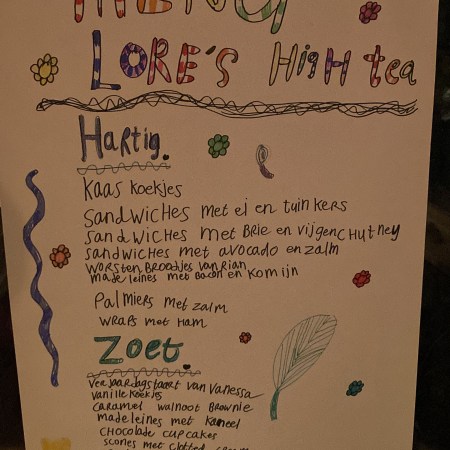 MENU
LORE'S HigH tea
Hartig.
Kaas Koekjes
Sandwiches met ei en tuinkers
Sandwiches met Brie en vijgenchutney
Sandwiches met avocado en zalm
Worstenbroodjes van Rian
madeleines met bacon en komijn
Palmiers met zalm
Wraps met Ham
Zoet.
Verjaardagstaart van Vanessa
Vanille koekjes
Caramel walnoot Brownie
madeleines met kaneel
CHocolade cupcakes
scones met clotted cream